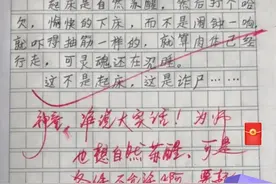 起床是自然苏醒，然后打个哈
欠，慵懒的下床，而不是闹钟一响
就吓得抽筋一样的，就算肉体已经
行走，可灵魂还在沉睡。
这不是起床，这是诈尸……
谁说大实话！为师
也想自然苏醒，可是